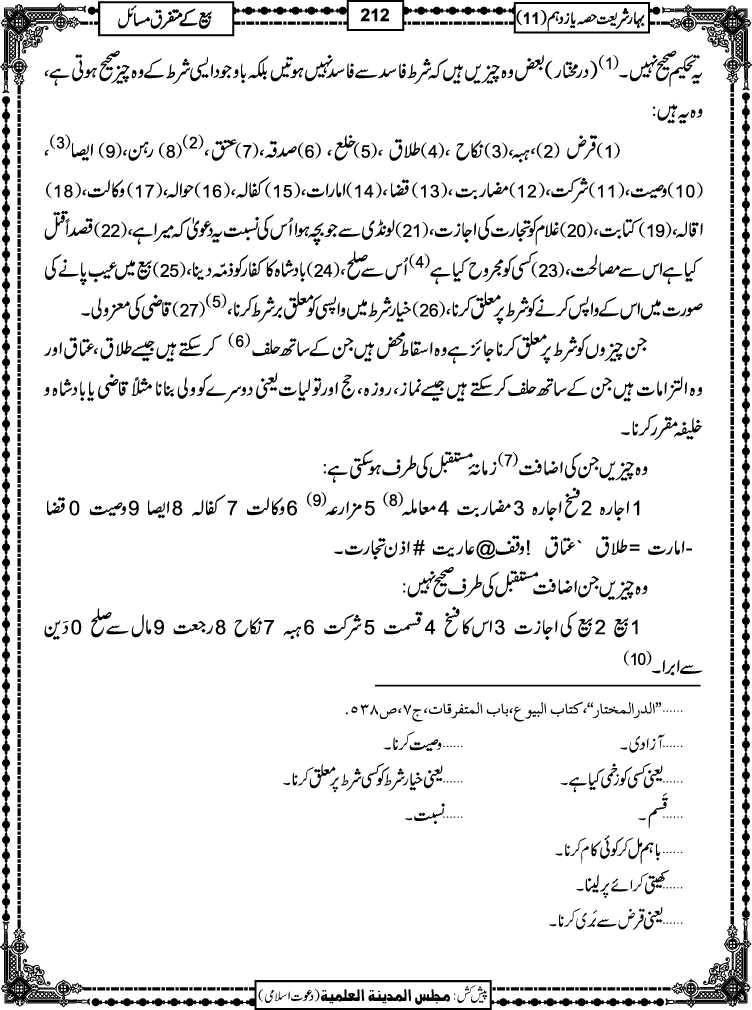 بہار شریعت حصہ یازدہم (11)
212
بیع کے متفرق مسائل
یہ تحکیم صحیح نہیں۔(1) (درمختار) بعض وہ چیزیں ہیں کہ شرط فاسد سے فاسد نہیں ہوتیں بلکہ باوجود ایسی شرط کے وہ چیز صحیح ہوتی ہے،
وہ یہ ہیں:
(1) قرض (2)، ہبہ، (3) نکاح ، (4) طلاق ، (5) خلع ، (6) صدقہ، (7) عتق ،(2) (8) رہن، (9) ایصا(3)،
(10) وصیت، (11) شرکت، (12) مضاربت ، (13) قضا ، (14) امارات، (15) کفالہ، (16) حوالہ، (17) وکالت، (18)
اقالہ، (19) کتابت، (20) غلام کو تجارت کی اجازت، (21) لونڈی سے جو بچہ ہوا اُس کی نسبت یہ دعویٰ کہ میرا ہے، (22) قصداً قتل
کیا ہے اس سے مصالحت، (23) کسی کو مجروح کیا ہے(4) اُس سے صلح، (24) بادشاہ کا کفار کو ذمّہ دینا، (25) بیع میں عیب پانے کی
صورت میں اس کے واپس کرنے کو شرط پر معلق کرنا، (26) خیار شرط میں واپسی کو معلق بر شرط کرنا،(5) (27) قاضی کی معزولی۔
جن چیزوں کو شرط پر معلق کرنا جائز ہے وہ اسقاط محض ہیں جن کے ساتھ حلف(6) کر سکتے ہیں جیسے طلاق، عتاق اور
وہ التزامات ہیں جن کے ساتھ حلف کر سکتے ہیں جیسے نماز، روزہ، حج اور تولیات یعنی دوسرے کو ولی بنانا مثلاً قاضی یا بادشاہ و
خلیفہ مقرر کرنا۔
وہ چیزیں جن کی اضافت(7) زمانۂ مستقبل کی طرف ہو سکتی ہے:
1 اجارہ 2 فسخ اجارہ 3 مضاربت 4 معاملہ(8) 5 مزارعہ(9) 6 وکالت 7 کفالہ 8 ایصا 9 وصیت 0 قضا
-امارت =طلاق `عتاق !وقف @عاریت #اذن تجارت۔
وہ چیزیں جن اضافت مستقبل کی طرف صحیح نہیں:
1 بیع 2 بیع کی اجازت 3 اس کا فسخ 4 قسمت 5 شرکت 6 ہبہ 7 نکاح 8 رجعت 9 مال سے صلح 0 دَین
سے ابرا۔(10)
......"الدرالمختار"، کتاب البیوع، باب المتفرقات، ج۷، ص۵۳۸.
......آزادی۔ ......وصیت کرنا۔
......یعنی کسی کو زخمی کیا ہے۔ ......یعنی خیار شرط کو کسی شرط پر معلق کرنا۔
......قَسم۔ ......نسبت۔
......باہم مل کر کوئی کام کرنا۔
......کھیتی کرائے پر لینا۔
......یعنی قرض سے بَری کرنا۔
پیش کش: مجلس المدینۃ العلمیۃ (دعوت اسلامی)